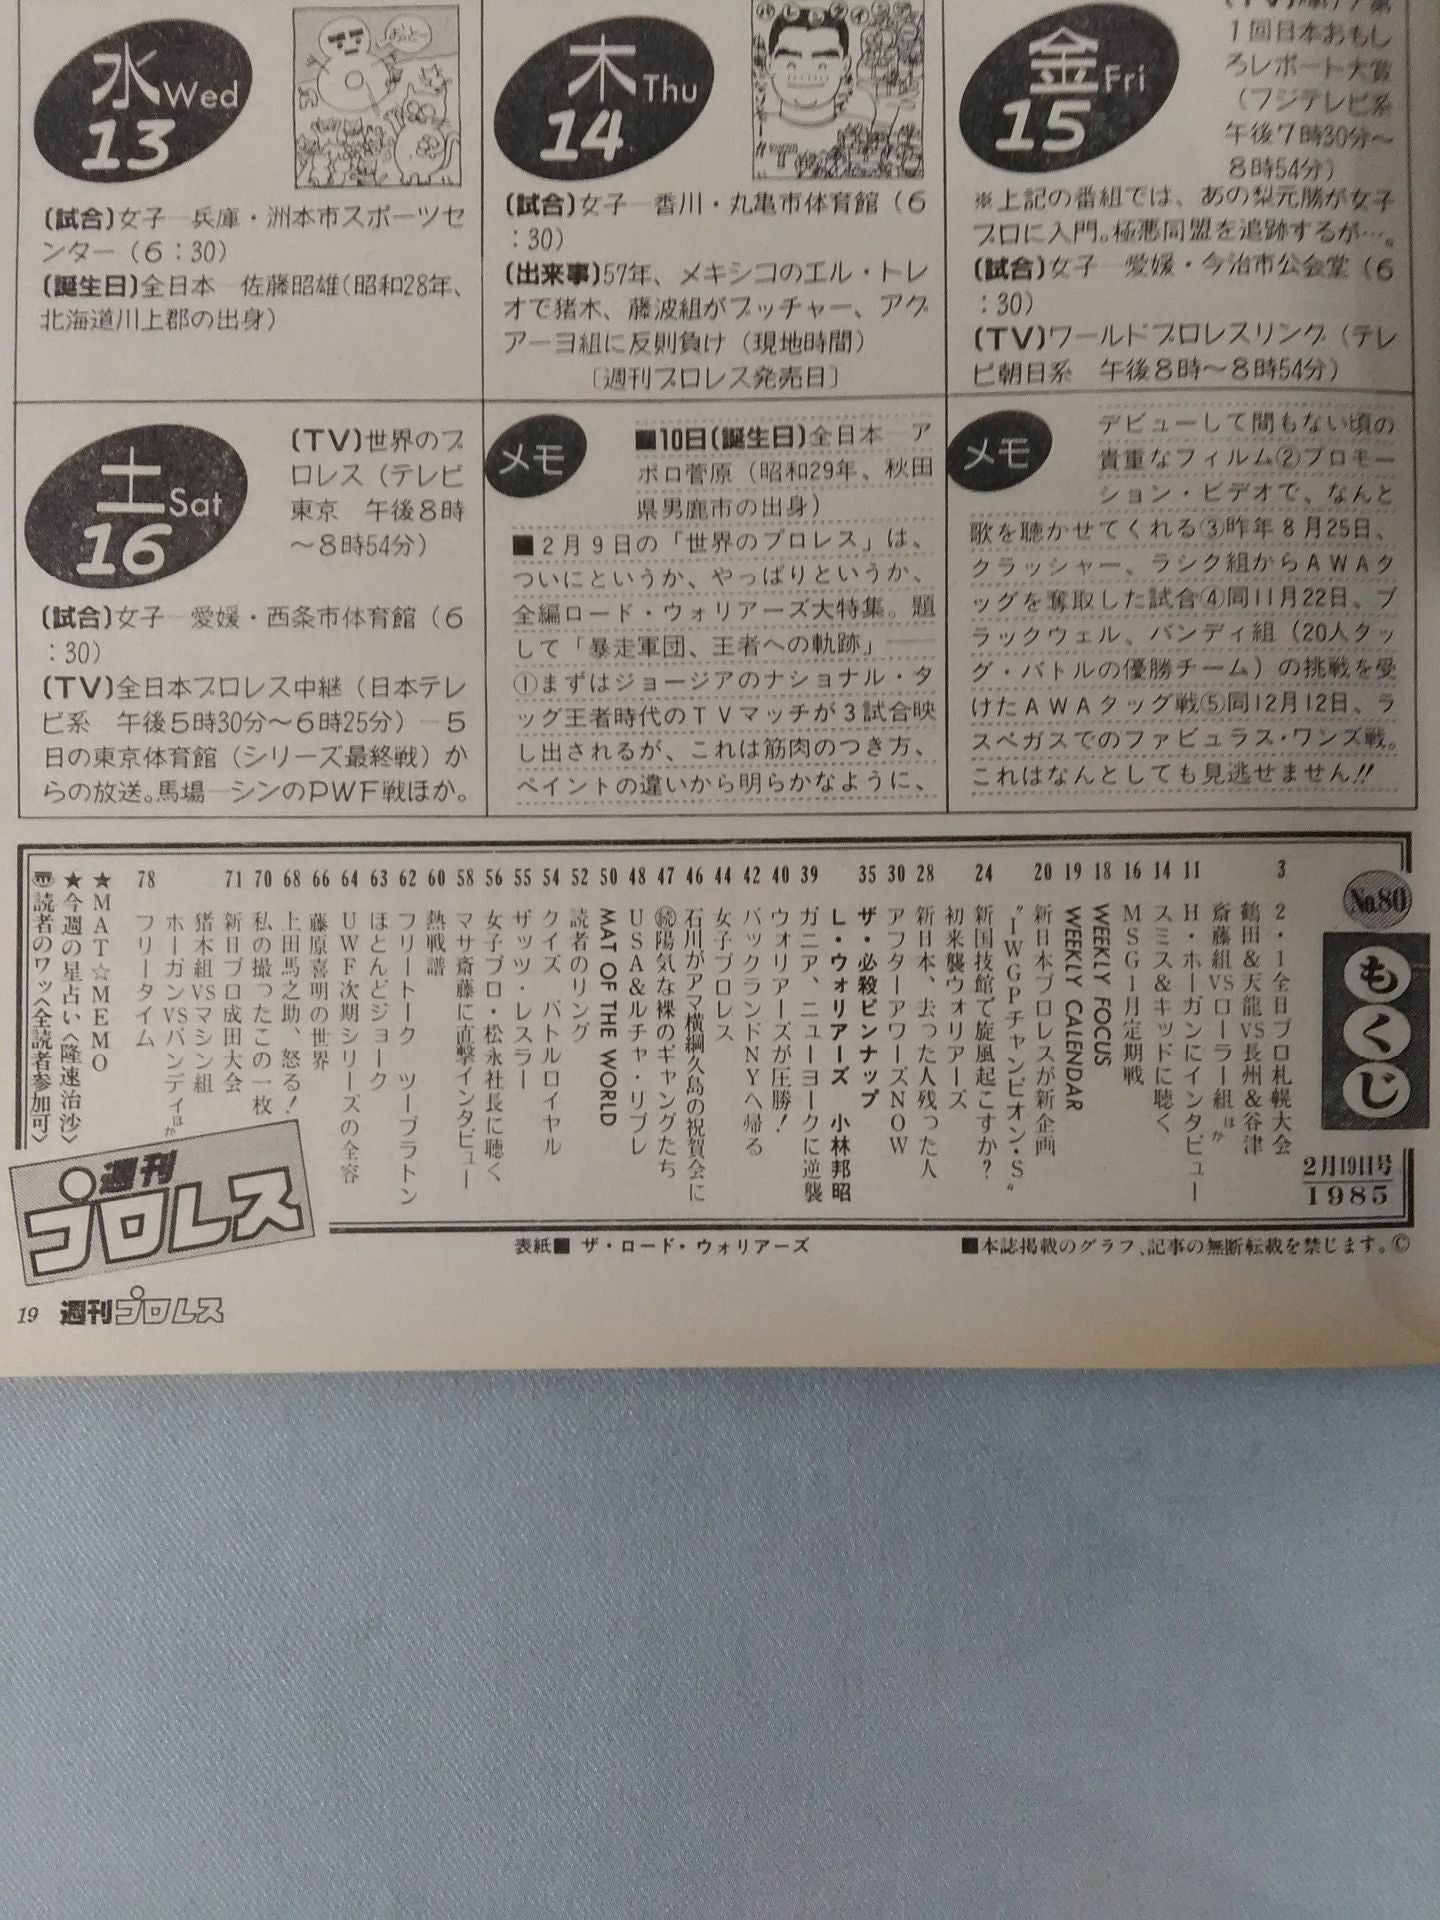 水 Wed
13
おっとー
(試合)女子―兵庫・洲本市スポーツセ
ンター(6:30)
(誕生日)全日本―佐藤昭雄(昭和28年、
北海道川上郡の出身)
木 Thu
14
バレンタインデー
(試合)女子―香川・丸亀市体育館(6
:30)
(出来事)57年、メキシコのエル・トレ
オで猪木、藤波組がブッチャー、アグ
アーヨ組に反則負け(現地時間)
〔週刊プロレス発売日〕
金 Fri
15
1回日本おもし
ろレポート大賞
(フジテレビ系
午後7時30分〜
8時54分)
※上記の番組では、あの梨元勝が女子
プロに入門。極悪同盟を追跡するが…。
(試合)女子―愛媛・今治市公会堂(6
:30)
(TV)ワールドプロレスリング(テレ
ビ朝日系 午後8時〜8時54分)
土 Sat
16
(TV)世界のプ
ロレス(テレビ
東京 午後8時
〜8時54分)
(試合)女子―愛媛・西条市体育館(6
:30)
(TV)全日本プロレス中継(日本テレ
ビ系 午後5時30分〜6時25分)―5
日の東京体育館(シリーズ最終戦)か
らの放送。馬場―シンのPWF戦ほか。
メモ
■10日(誕生日)全日本―ア
ポロ菅原(昭和29年、秋田
県男鹿市の出身)
■2月9日の「世界のプロレス」は、
ついにというか、やっぱりというか、
全編ロード・ウォリアーズ大特集。題
して「暴走軍団、王者への軌跡」――
①まずはジョージアのナショナル・タ
ッグ王者時代のTVマッチが3試合映
し出されるが、これは筋肉のつき方、
ペイントの違いから明らかなように、
メモ
デビューして間もない頃の
貴重なフィルム②プロモー
ション・ビデオで、なんと
歌を聴かせてくれる③昨年8月25日、
クラッシャー、ラシク組からAWAタ
ッグを奪取した試合④同11月22日、ブ
ラックウェル、バンディ組(20人タッ
グ・バトルの優勝チーム)の挑戦を受
けたAWAタッグ戦⑤同12月12日、ラ
スベガスでのファビュラス・ワンズ戦。
これはなんとしても見逃せません!!
No.80
もくじ
2月19日号
1985
3 2・1全日プロ札幌大会
鶴田&天龍VS長州&谷津
斎藤組VSローラー組ほか
11 H・ホーガンにインタビュー
14 スミス&キッドに聴く
16 MSG1月定期戦
18 WEEKLY FOCUS
19 WEEKLY CALENDAR
20 新日本プロレスが新企画
“IWGPチャンピオン・S”
24 新国技館で旋風起こすか?
初来襲ウォリアーズ
28 新日本、去った人残った人
30 アフターアワーズNOW
35 ザ・必殺ピンナップ
L・ウォリアーズ 小林邦昭
39 ガニア、ニューヨークに逆襲
40 ウォリアーズが圧勝!
42 バックランドNYへ帰る
44 女子プロレス
46 石川がアマ横綱久島の祝賀会に
47 ㊙陽気な裸のギャングたち
48 USA&ルチャ・リブレ
50 MAT OF THE WORLD
52 読者のリング
54 クイズ バトルロイヤル
55 ザッツ・レスラー
56 女子プロ・松永社長に聴く
58 マサ斎藤に直撃インタビュー
60 熱戦譜
62 フリートーク ツープラトン
63 ほとんどジョーク
64 UWF次期シリーズの全容
66 藤原喜明の世界
68 上田馬之助、怒る!
70 私の撮ったこの一枚
71 新日プロ成田大会
猪木組VSマシン組
ホーガンVSバンディほか
78 フリータイム
★MAT☆MEMO
★今週の星占い〈隆速治沙〉
読者のワッ〈全読者参加可〉
週刊
プロレス
表紙■ザ・ロード・ウォリアーズ
■本誌掲載のグラフ、記事の無断転載を禁じます。©
19 週刊プロレス